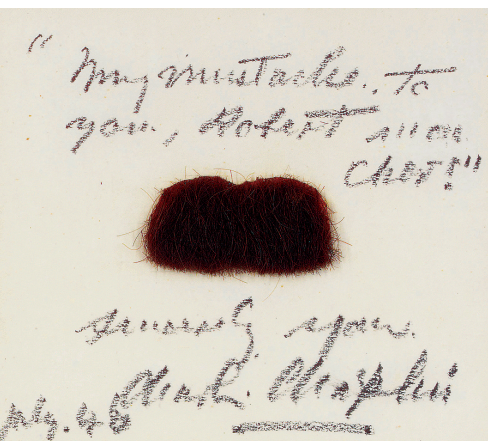 "My mustache.. to
you, Robert mon
Cher!"
sincerely yours.
Chas. Chaplin